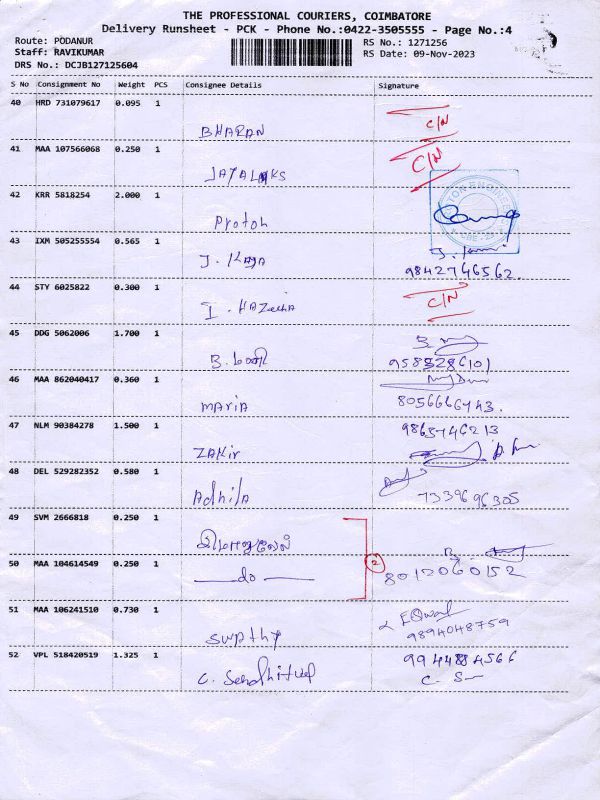 THE PROFESSIONAL COURIERS, COIMBATORE
Delivery Runsheet - PCK - Phone No.:0422-3505555 - Page No.:4
Route: PODANUR RS No.: 1271256
Staff: RAVIKUMAR RS Date: 09-Nov-2023
DRS No.: DCJB127125604
S No Consignment No Weight PCS Consignee Details Signature
40 HRD 731079617 0.095 1
BHARAN C/N
41 MAA 107566068 0.250 1
C/N
42 KRR 5818254 2.000 1
Proton
43 IXM 505255554 0.565 1
J. 9842746562.
44 STY 6025822 0.300 1
I. C/N
45 DDG 5062006 1.700 1
B. மணி
46 MAA 862040417 0.360 1
maria 8056666743.
47 NLM 90384278 1.500 1
ZAKir
48 DEL 529282352 0.580 1
Adhila 7339696305
49 SVM 2666818 0.250 1
50 MAA 104614549 0.250 1 2
do 8012060152
51 MAA 106241510 0.730 1
swathy 9894048759
52 VPL 518420519 1.325 1 9944884566
C.